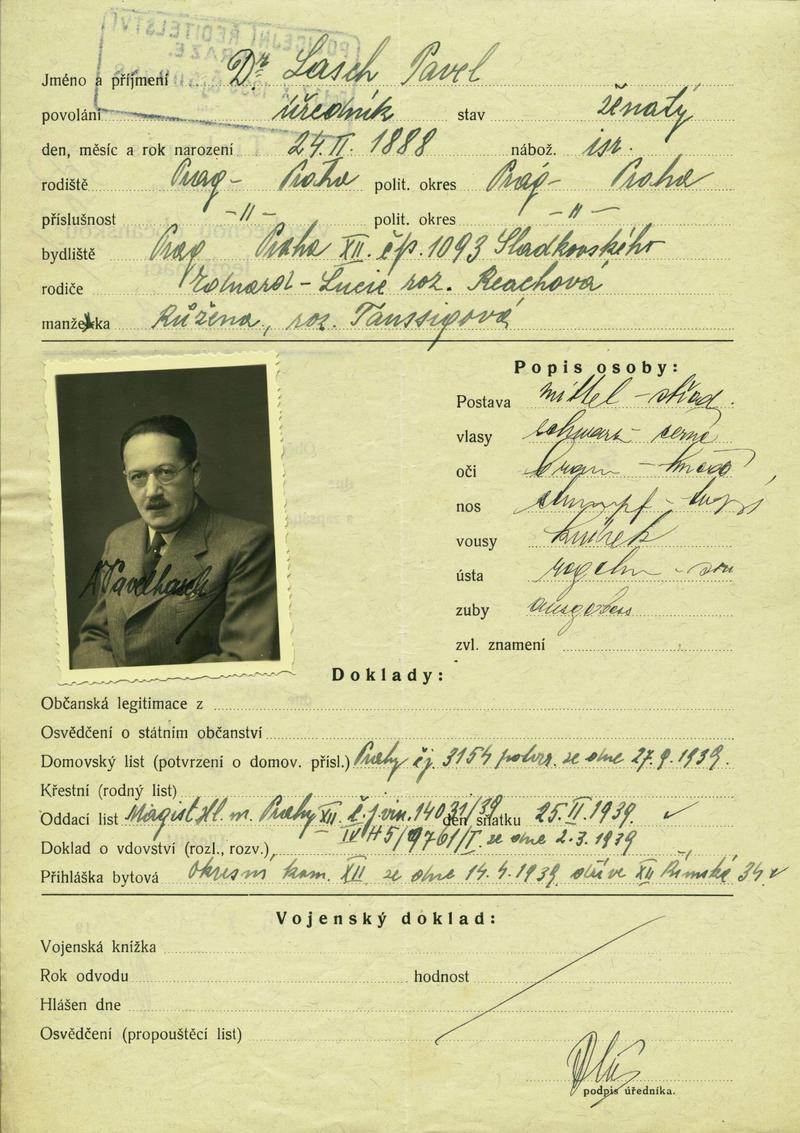 POLICEJNÍ ŘEDITELSTVÍ
Jméno a příjmení Dr. Lasch Pavel
povolání úředník stav ženatý
den, měsíc a rok narození 24.II. 1888 nábož. isr.
rodiště Prag - Praha polit. okres Prag - Praha
příslušnost -"- polit. okres -"-
bydliště Prag Praha XII. čp. 1093 Sladkovského
rodiče Eduard - Lucie roz. Reachová
manželka Růžena, roz. Taussigová
Popis osoby:
Postava mittel - střed.
vlasy schwarz - černé
oči braun - hnědé
nos stumpf - tupý
vousy knírek
ústa regelm -
zuby
zvl. znamení
Dr Pavel Lasch
Doklady:
Občanská legitimace z
Osvědčení o státním občanství
Domovský list (potvrzení o domov. přísl.) Prahy čj. 3154 potvrz. ze dne 27.9.1939.
Křestní (rodný list)
Oddací list Magist. hl. m. Prahy XII. č.j. vin. 14031/39 den sňatku 25.II.1939.
Doklad o vdovství (rozl., rozv.) IV H 5/9761/I. ze dne 2.3.1939
Přihláška bytová Okresní kom. XII ze dne 14.4.1939 XII Římská 34
Vojenský doklad:
Vojenská knížka
Rok odvodu hodnost
Hlášen dne
Osvědčení (propouštěcí list)
podpis úředníka.